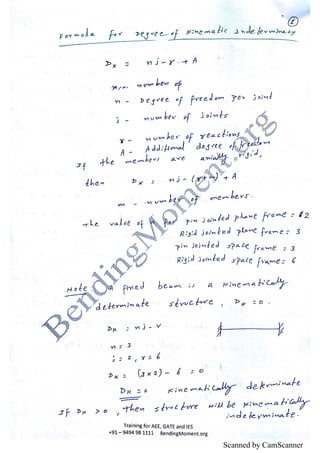 (8)
Formula for Degree of Kinematic Indeterminacy
Dk = nj - r + A
n - Degree of freedom per joint
j - number of joints
r - number of reactions
A - Additional degree of freedom
If the members are axially rigid,
then Dk = nj - (r+m) + A
m - number of members.
The value of n for pin jointed plane frame = 2
Rigid jointed plane frame = 3
pin jointed space frame = 3
Rigid jointed space frame = 6
Note: A fixed beam is a kinematically
determinate structure, Dk = 0.
Dk = nj - r
n = 3
j = 2, r = 6
Dk = (3x2) - 6 = 0
Dk = 0 kinematically determinate
If Dk > 0, then structure will be kinematically
indeterminate.
BendingMoment.org
Training for AEE, GATE and IES
+91 – 9494 98 1111 BendingMoment.org
Scanned by CamScanner